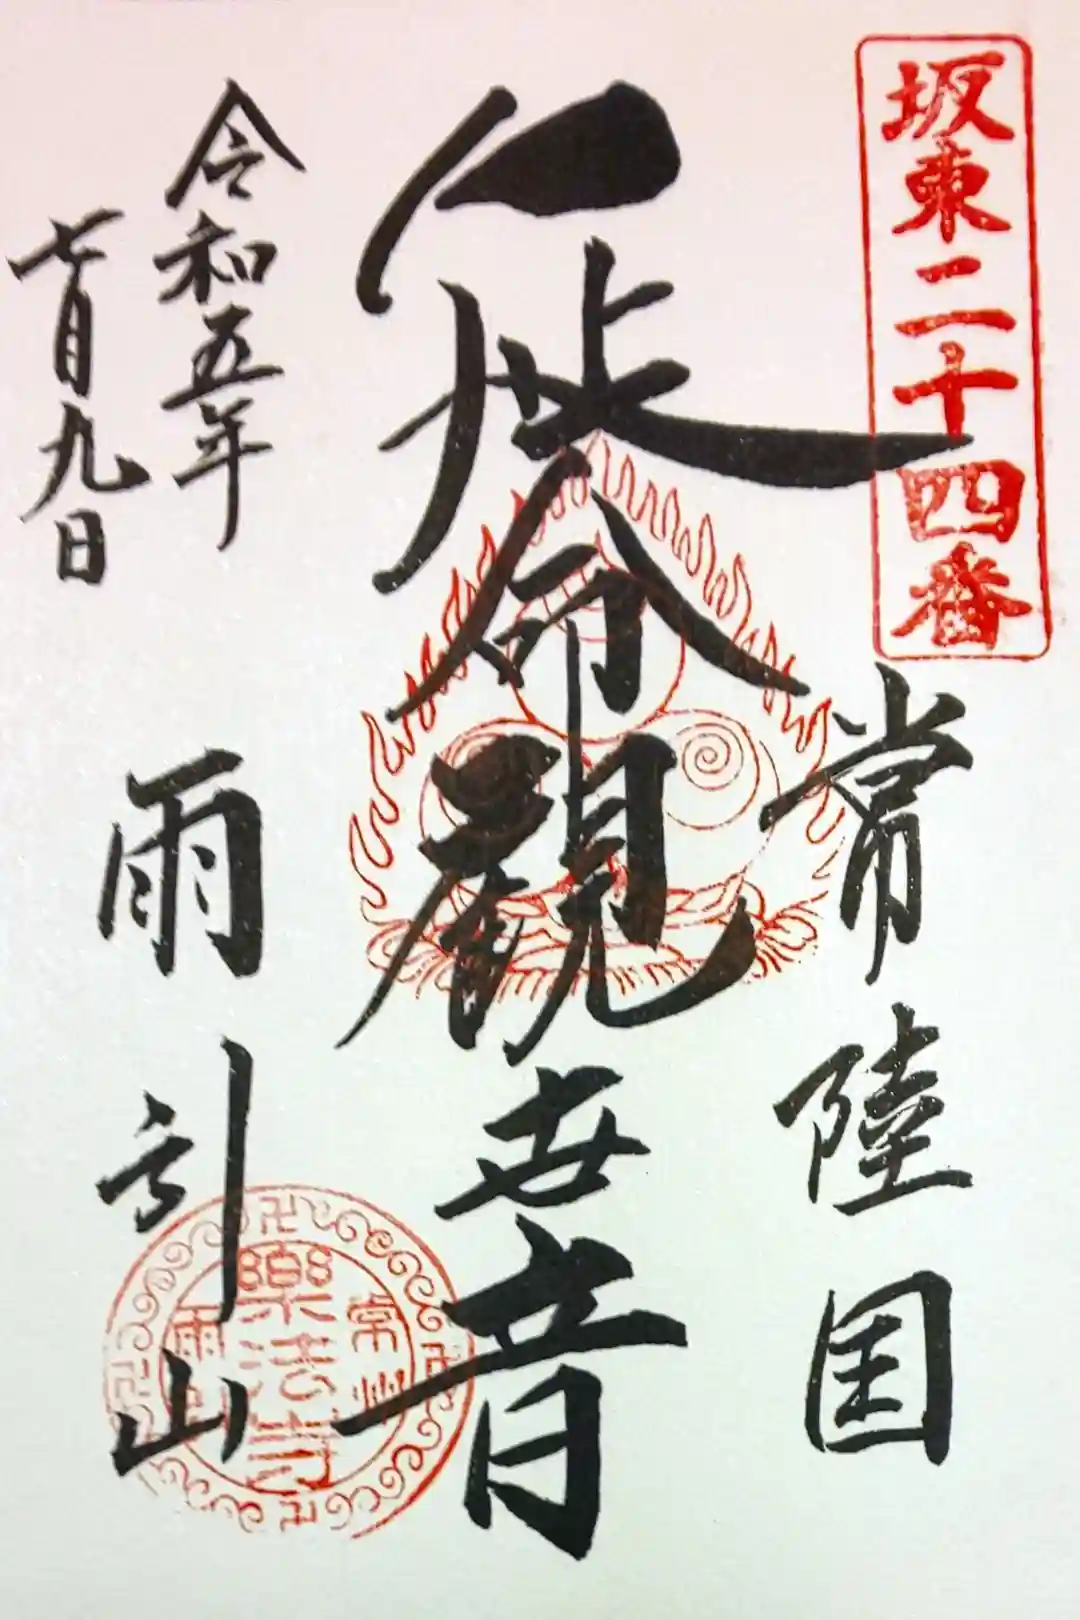 坂東二十四番
常陸国
延命観世音
令和五年
七月九日
雨引山
常州
樂法寺